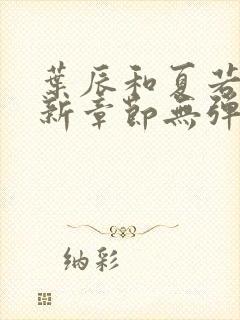 葉辰和夏若
新章節無彈
纳彩